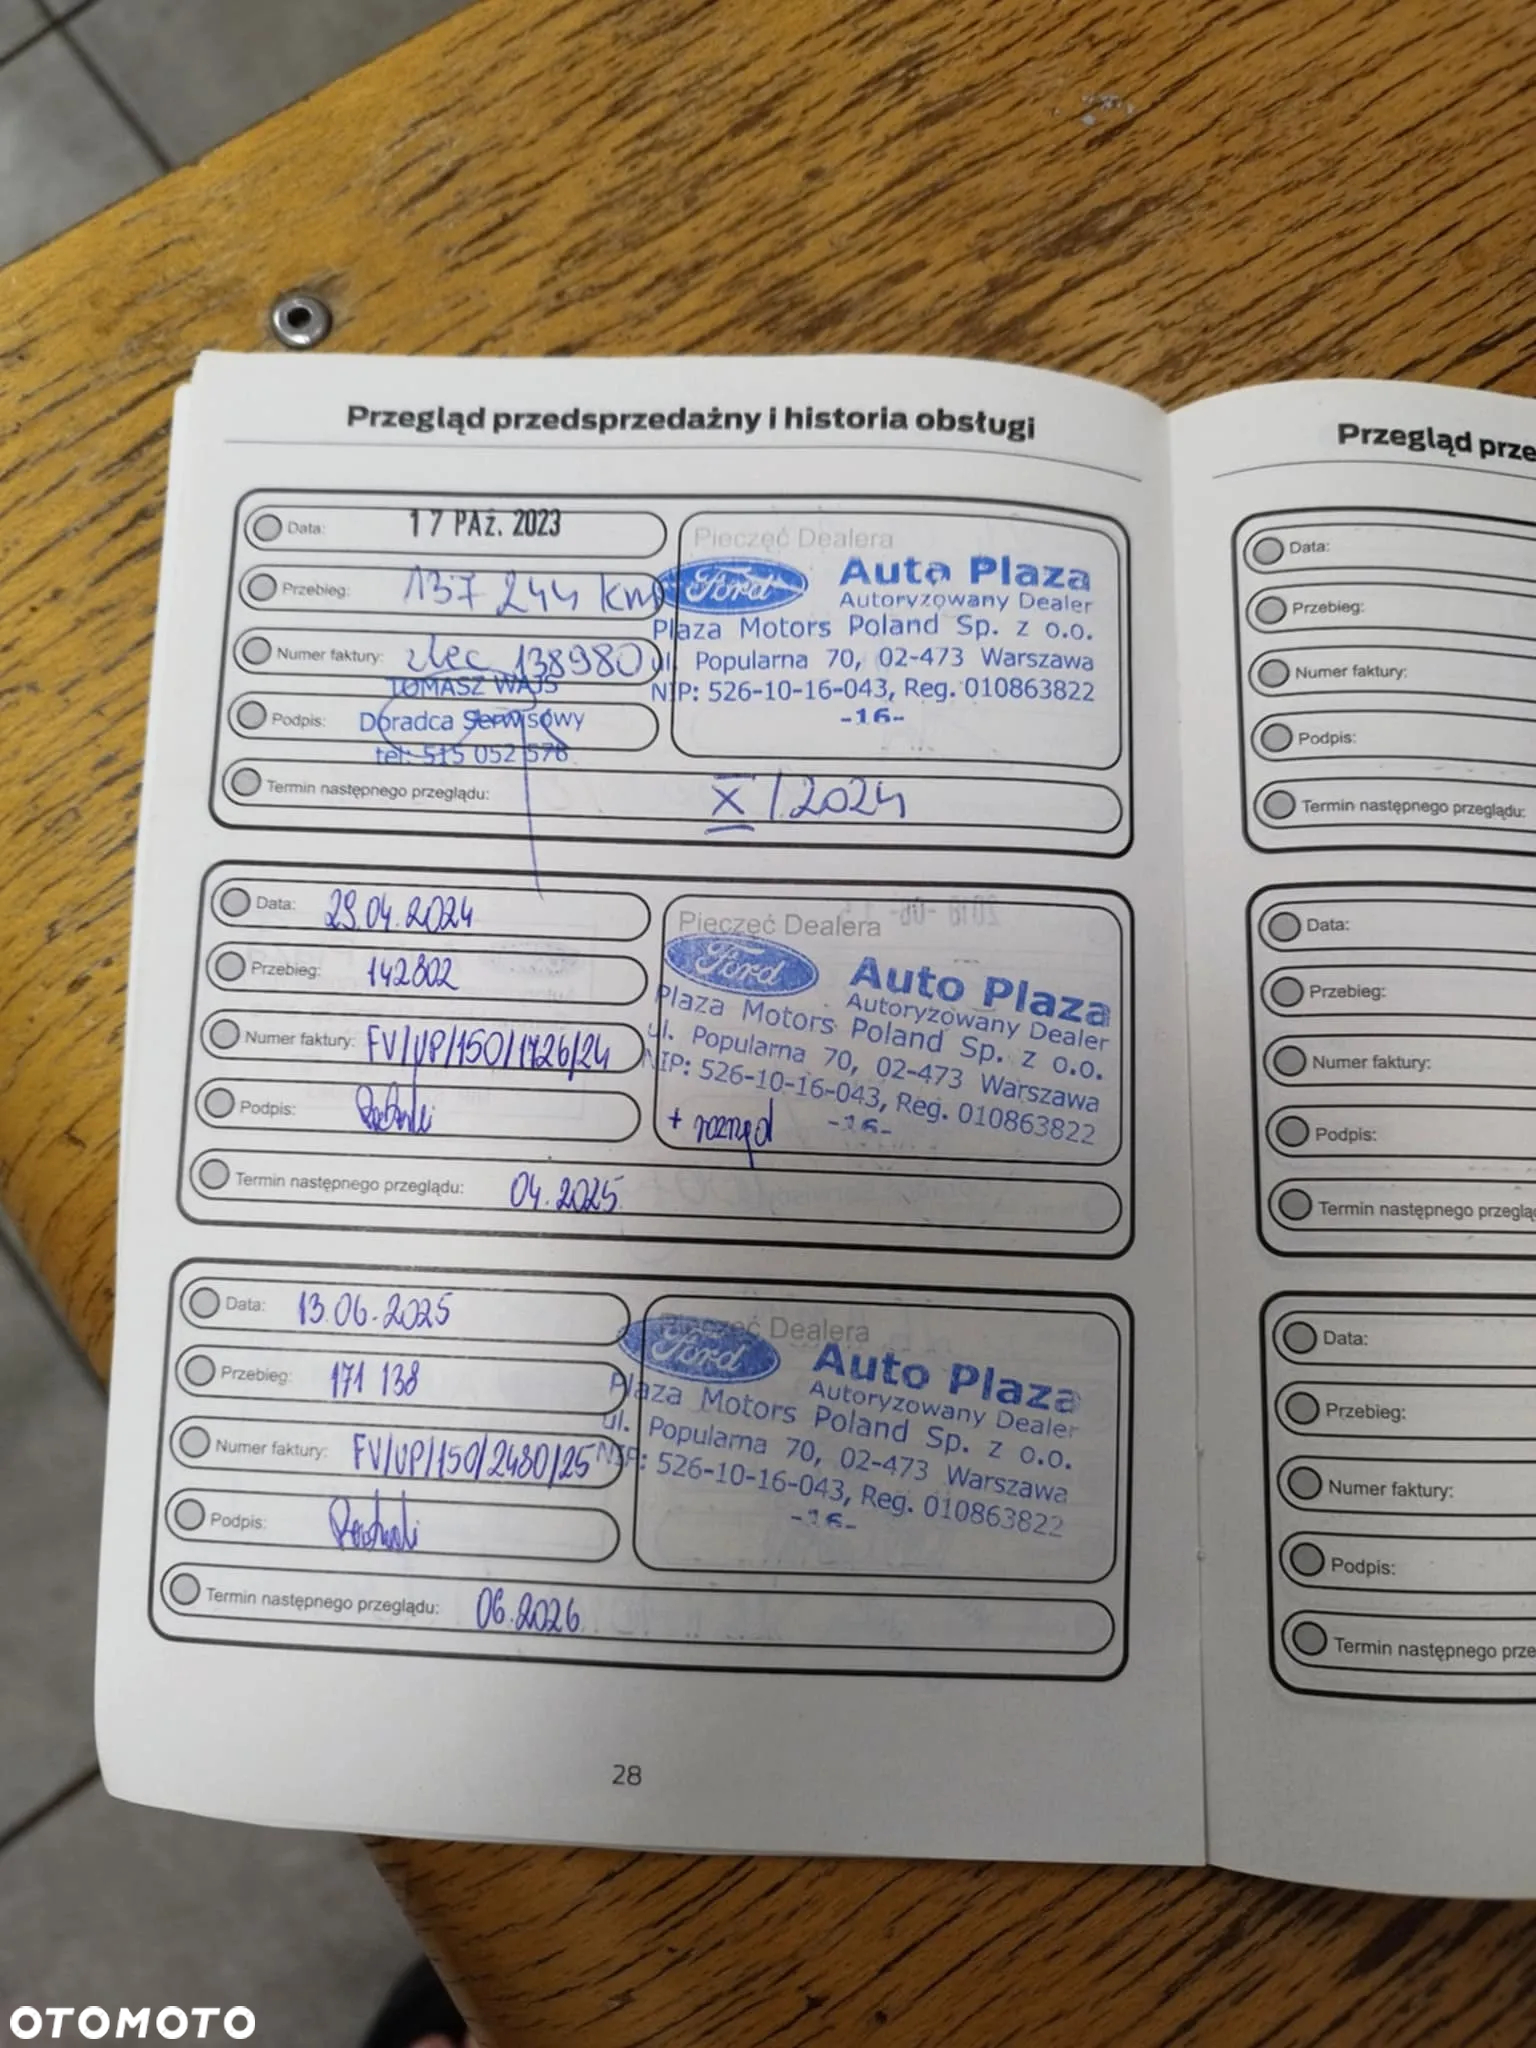 Przegląd przedsprzedażny i historia obsługi
Data: 17 PAź. 2023
Przebieg: 137 244 km
Numer faktury: zlec 138980
TOMASZ WAJS
Podpis: Doradca Serwisowy
tel: 515 052 576
Termin następnego przeglądu: X / 2024
Pieczęć Dealera
Ford Auto Plaza
Autoryzowany Dealer
Plaza Motors Poland Sp. z o.o.
ul. Popularna 70, 02-473 Warszawa
NIP: 526-10-16-043, Reg. 010863822
-16-
Data: 29.04.2024
Przebieg: 142802
Numer faktury: FV/UP/150/1726/24
Podpis:
Termin następnego przeglądu: 04.2025
Pieczęć Dealera
Ford Auto Plaza
Autoryzowany Dealer
Plaza Motors Poland Sp. z o.o.
ul. Popularna 70, 02-473 Warszawa
NIP: 526-10-16-043, Reg. 010863822
+ rozrząd -16-
Data: 13.06.2025
Przebieg: 171 138
Numer faktury: FV/UP/150/2480/25
Podpis:
Termin następnego przeglądu: 06.2026
Pieczęć Dealera
Ford Auto Plaza
Autoryzowany Dealer
Plaza Motors Poland Sp. z o.o.
ul. Popularna 70, 02-473 Warszawa
NIP: 526-10-16-043, Reg. 010863822
-16-
28
Przegląd prze
Data:
Przebieg:
Numer faktury:
Podpis:
Termin następnego przeglądu:
Data:
Przebieg:
Numer faktury:
Podpis:
Termin następnego przeglą
Data:
Przebieg:
Numer faktury:
Podpis:
Termin następnego prze
OTOMOTO